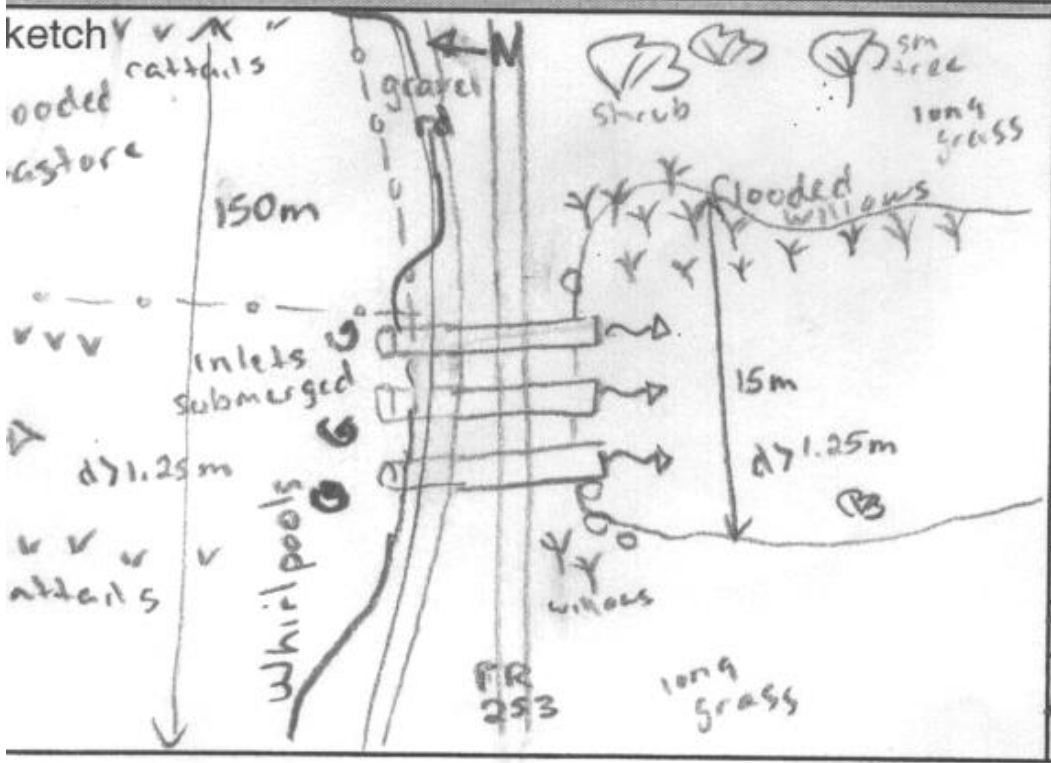 ketch
cattails
ooded
astore
150m
N
gravel
rd
shrub
sm
tree
long
grass
flooded
willows
inlets
submerged
15m
d>1.25m
d>1.25m
attails
whirlpools
willows
FR
253
long
grass